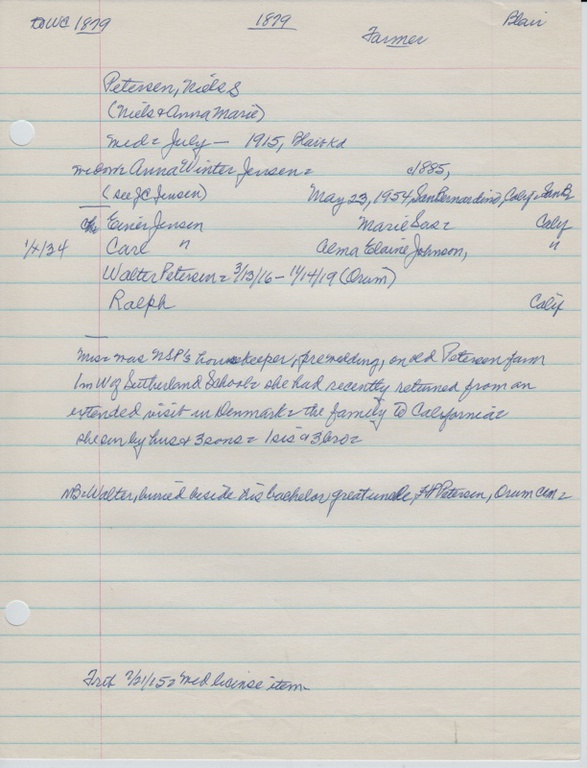 to WC 1879 1879 Farmer Blair
Petersen, Niels S
(Niels & Anna Marie)
md= July — 1915, Blair
Anna Winter Jensen= c1885,
(see JC Jensen) May 23, 1954, San Bernardino, Calif=
Ch= Einer Jensen Marie Calif
1/x/34 Carl " Alma Elaine Johnson, "
Walter Petersen= 3/13/16 – 11/14/19 (Orum)
Ralph Calif
Mis= was NSP's housekeeper, pre wedding, on old Petersen farm
1m W of Sutherland School= she had recently returned from an
extended visit in Denmark= the family to California=
she sur by hus & 3 sons= 1 sis & 3 bro=
NB= Walter, buried beside his bachelor, great uncle, Petersen, Orum cem=
Trib 7/21/15= md license item